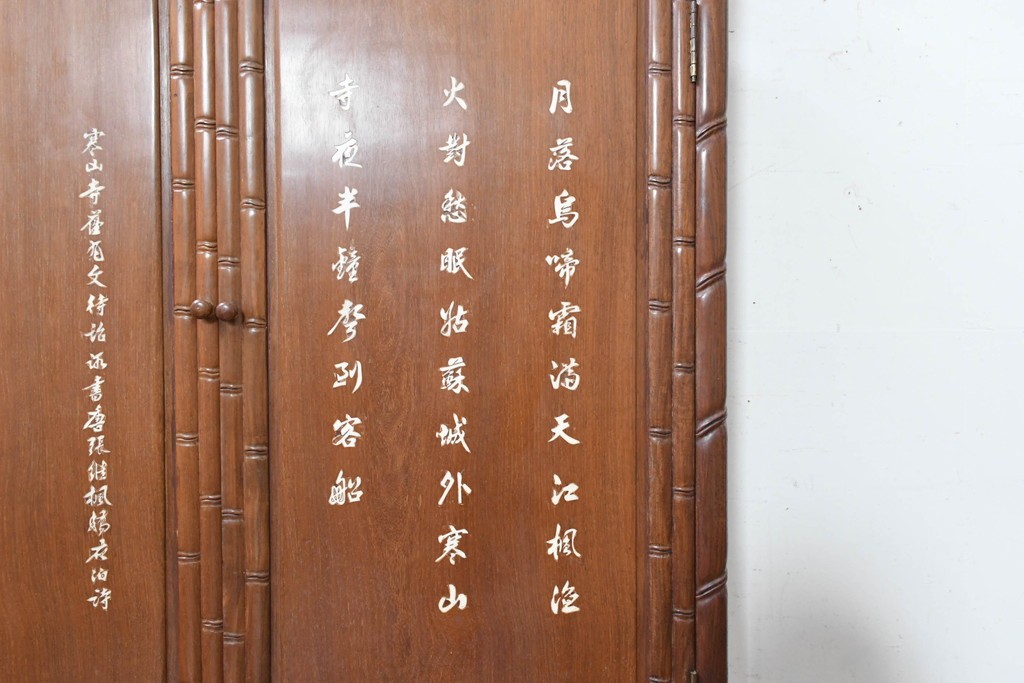 月落烏啼霜滿天江楓漁
火對愁眠姑蘇城外寒山
寺夜半鐘聲到客船
寒山寺舊有文待詔所書唐張繼楓橋夜泊詩